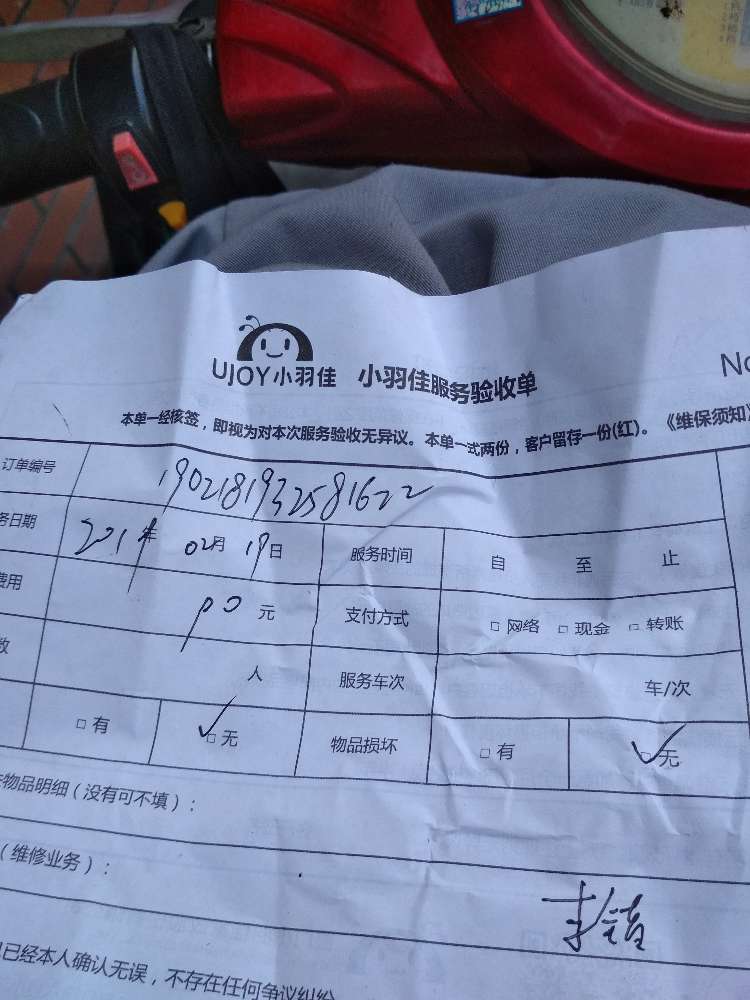 UJOY小羽佳 小羽佳服务验收单 No
本单一经核签，即视为对本次服务验收无异议。本单一式两份，客户留存一份(红)。《维保须知》
订单编号 1902181932581622
务日期 221年 02月 19日 服务时间 自 至 止
费用 90元 支付方式 □网络 □现金 □转账
数 人 服务车次 车/次
□有 □无 物品损坏 □有 □无
物品明细（没有可不填）：
（维修业务）：
已经本人确认无误，不存在任何争议纠纷